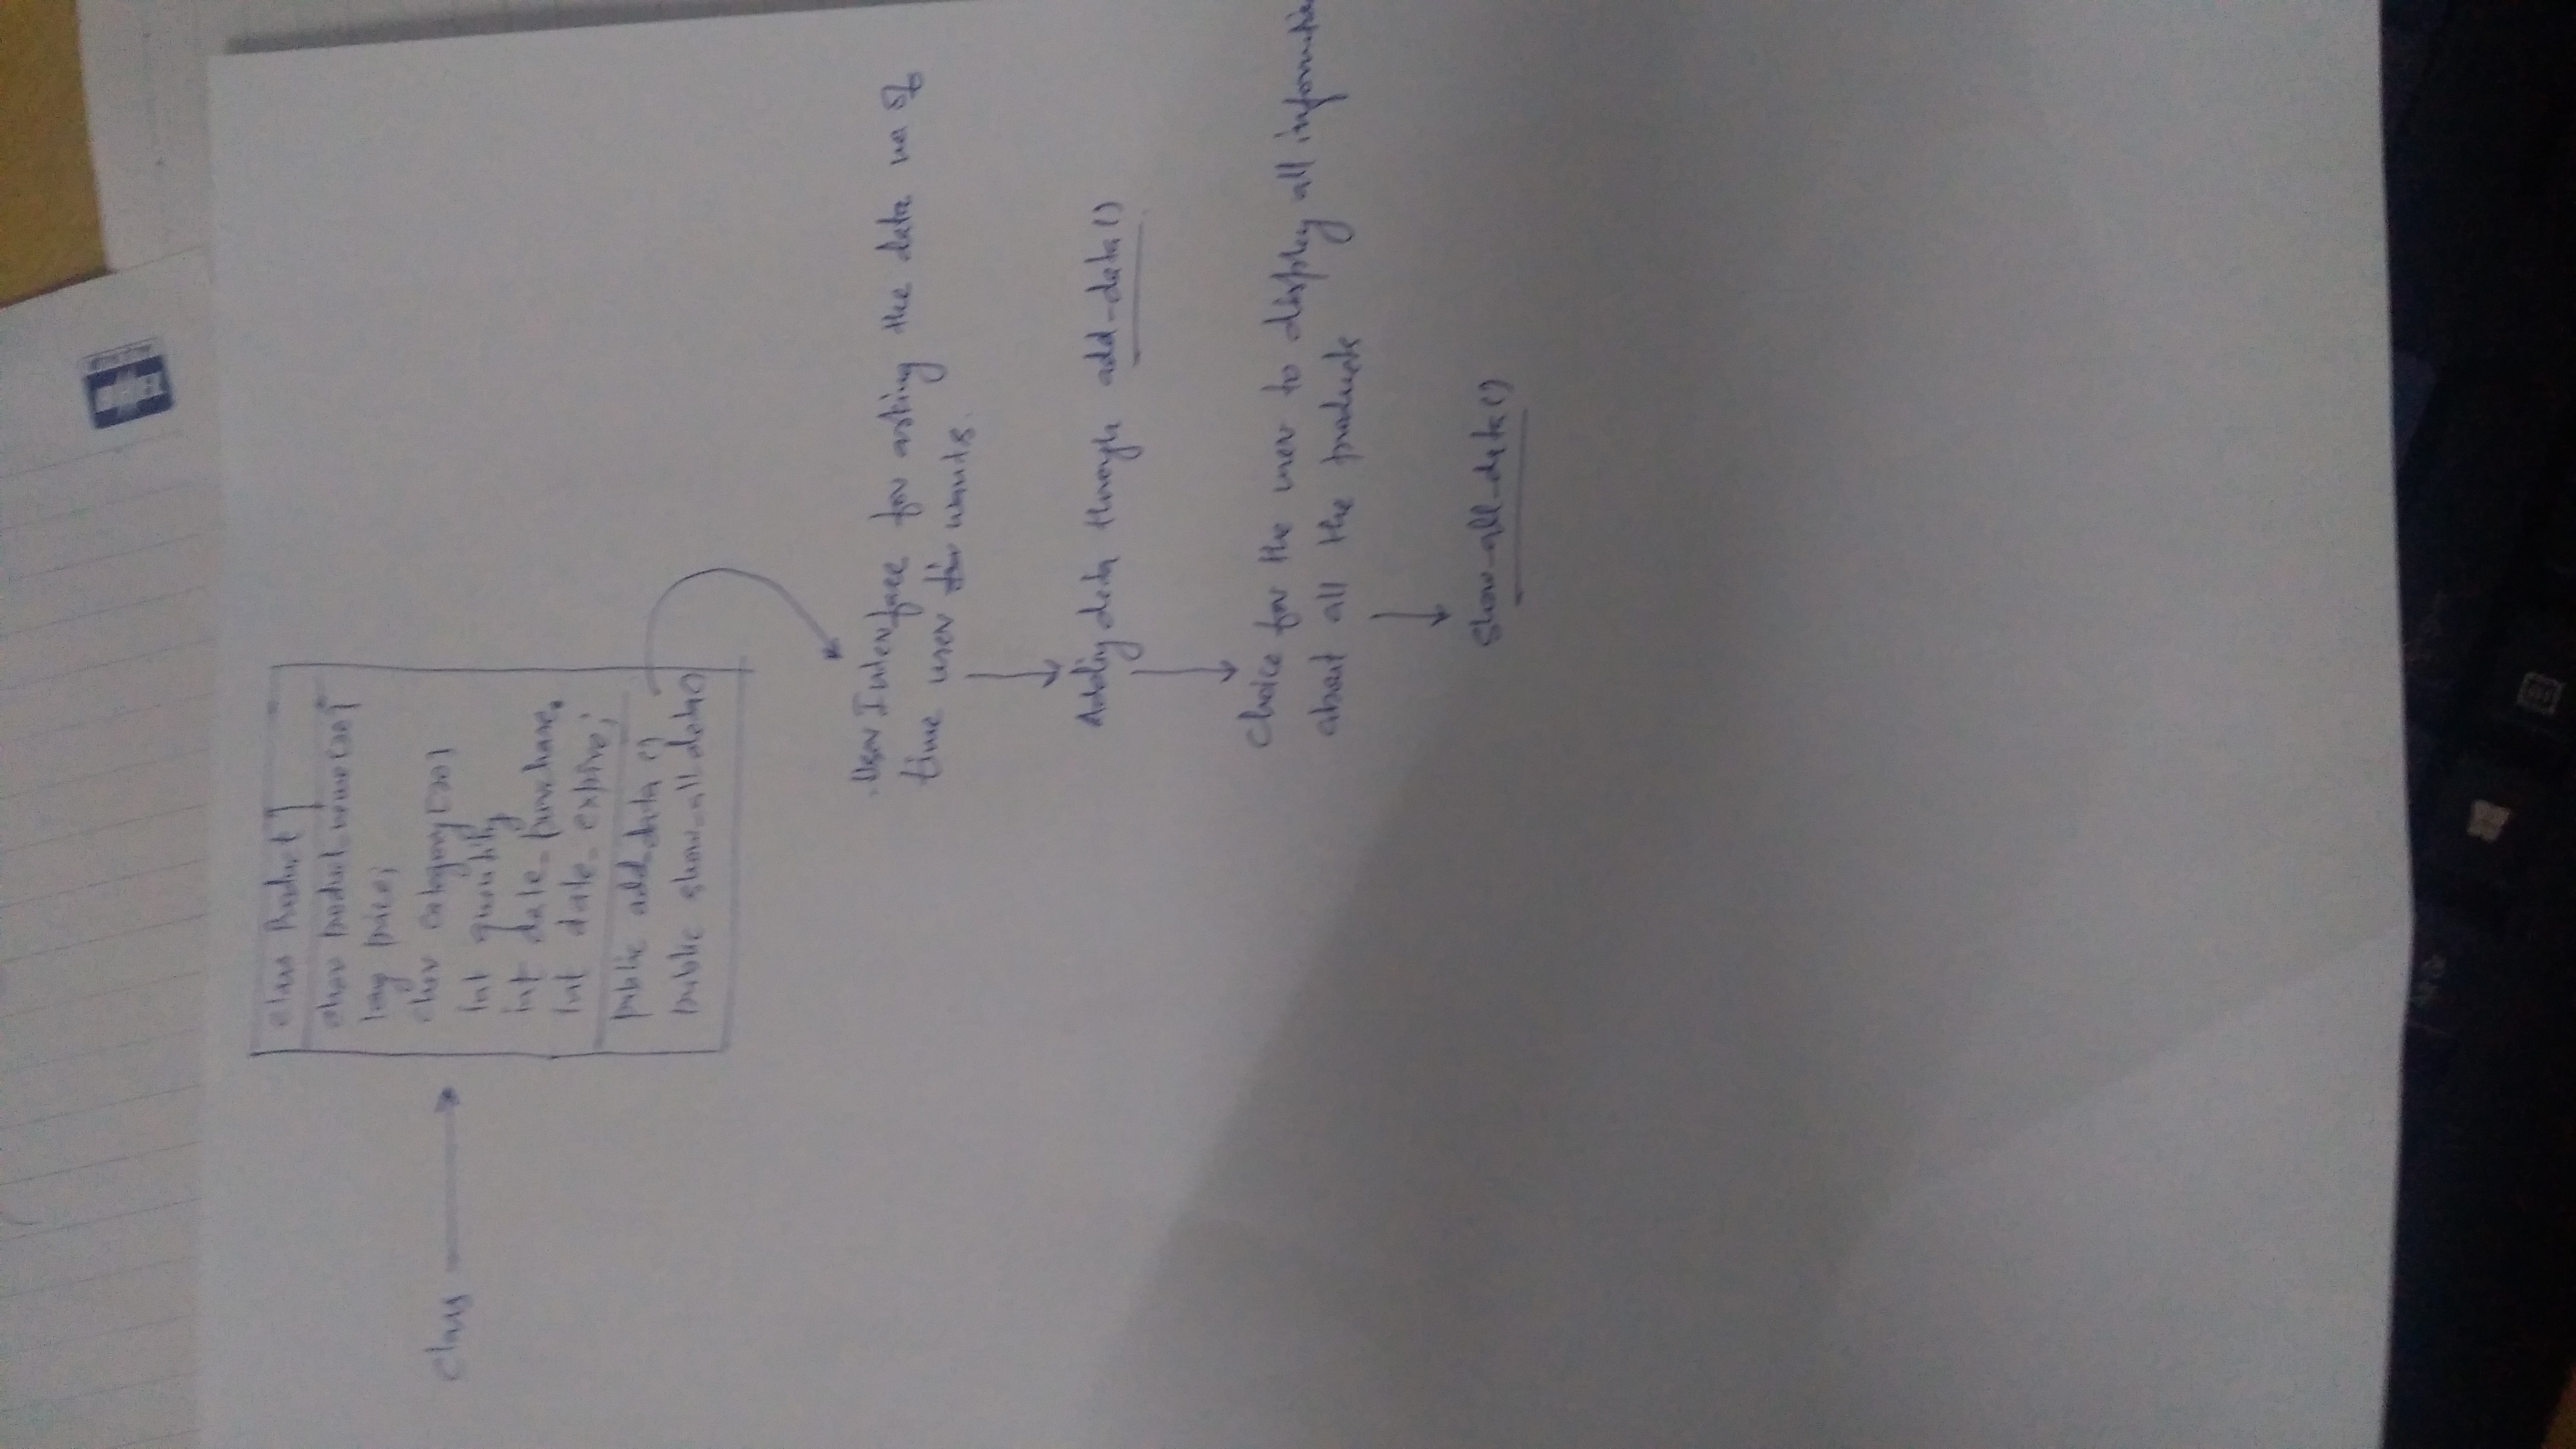 class Product {
char product_name[20]
long price;
char category[20]
int quantity
int date_purchase,
int date_expire;
public add_data ()
public show_all_data()
Class
User Interface for asking the data no of
time user wants.
Adding data through add_data()
Choice for the user to display all
about all the products
Show_all_data()